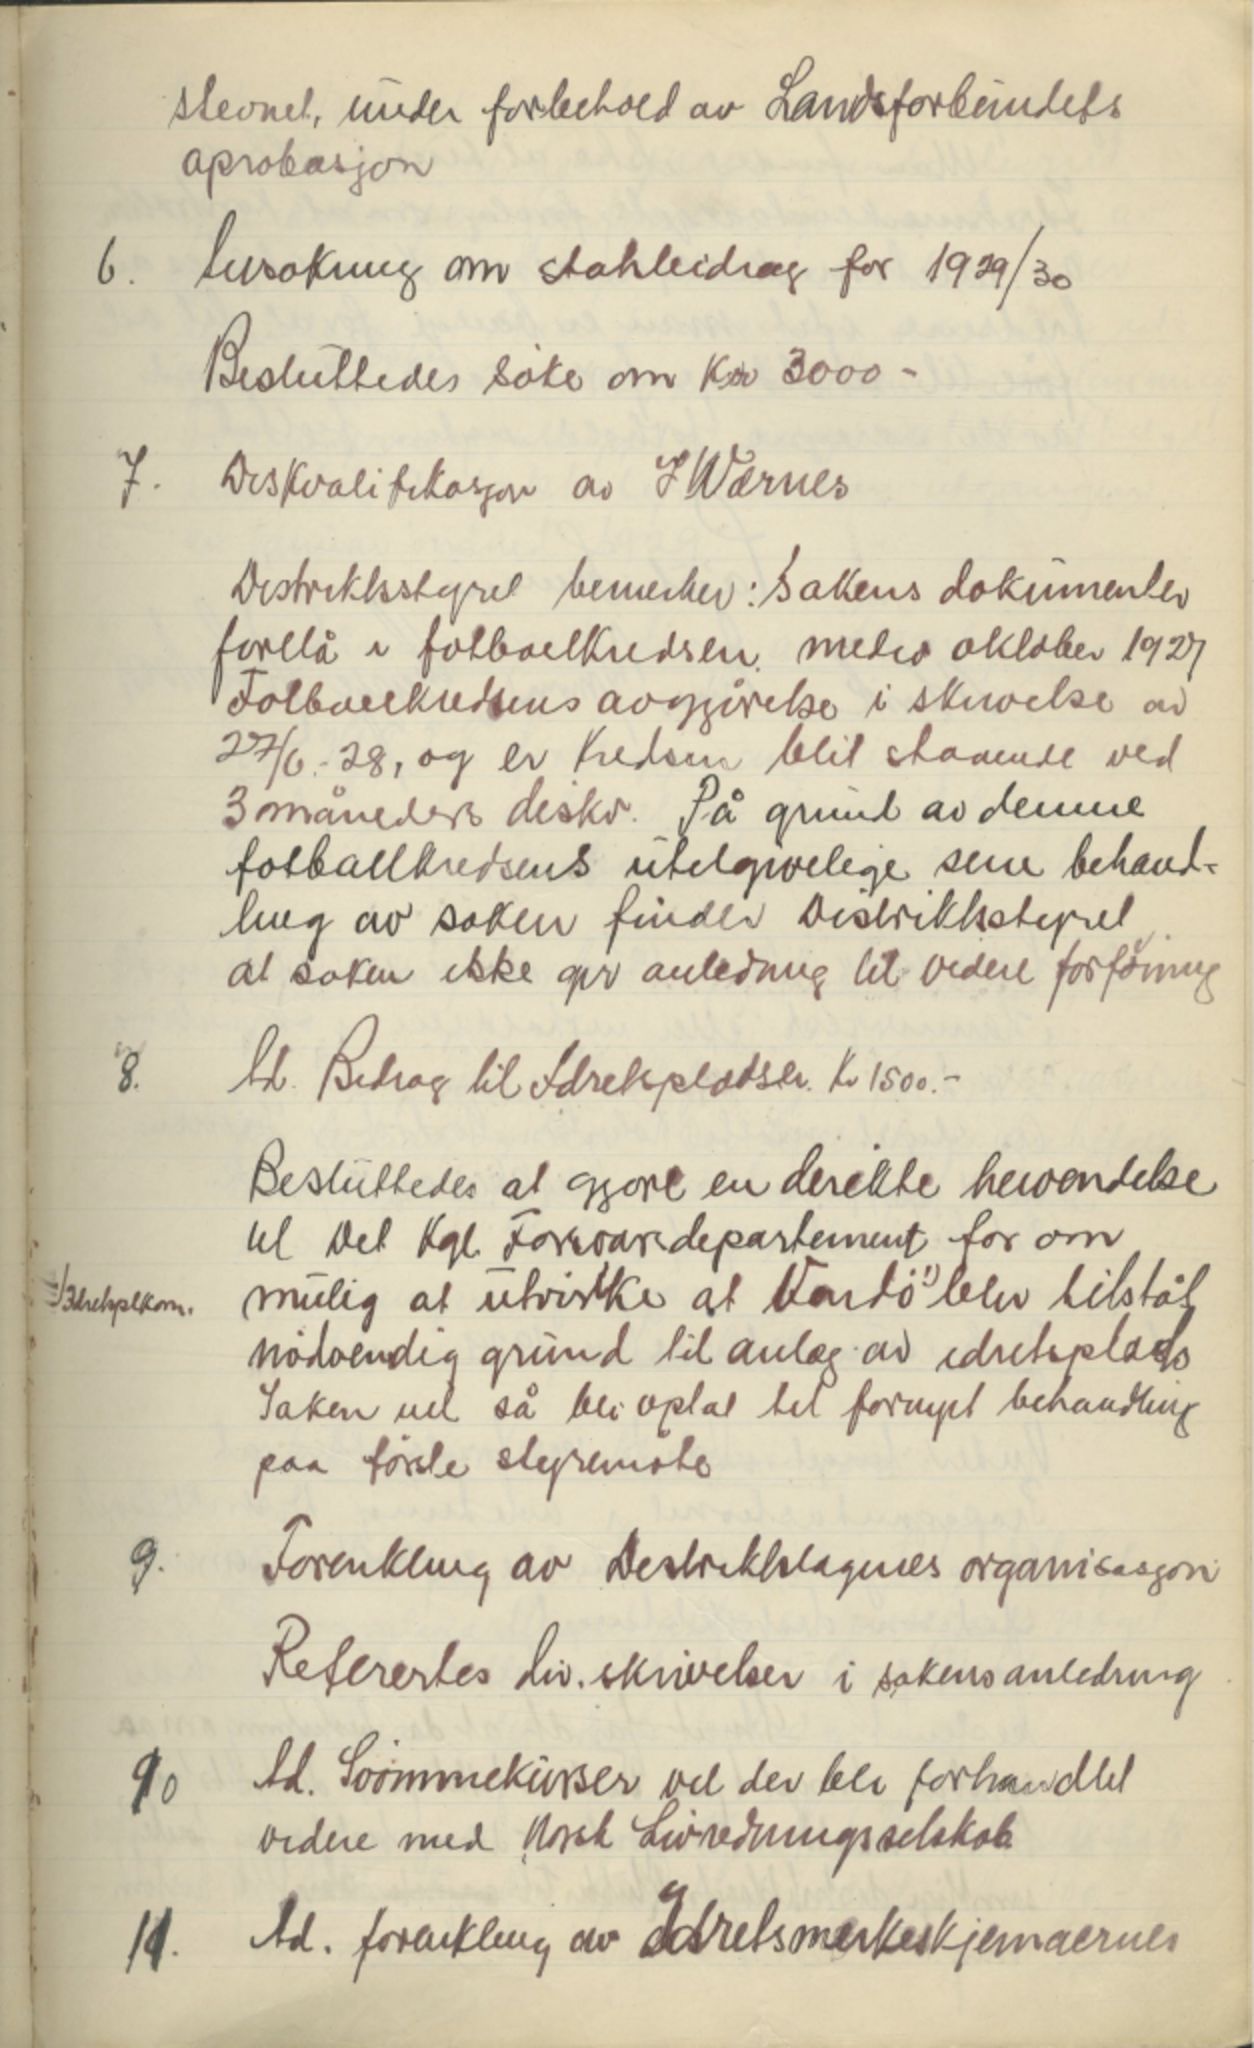 stevnet, under forbehold av Landsforbundets
aprobasjon
6. Ansøkning om statsbidrag for 1929/30
Besluttedes søke om Kr 3000-
7. Diskvalifikasjon av J Wærnes
Distriktsstyret bemerker: Sakens dokumenter
forelå i fotballkredsen medio oktober 1927
Fotballkredsens avgjörelse i skrivelse av
27/6.-28, og er kredsen blit staaende ved
3 måneders diskv. På grund av denne
fotballkredsens utilgivelige sene behand-
ling av saken finder Distriktsstyret
at saken ikke gir anledning til videre forföining
8. Ad. Bidrag til Idretspladser. Kr 1500.-
Besluttedes at gjøre en direkte henvendelse
til Det Kgl. Forsvarsdepartement for om
mulig at utvirke at Vardö 1) blev tilståt
1) Idretsplkom.
nödvendig grund til anlæg av idretsplads
Saken vil så bli optat til fornyet behandling
paa förste styremöte
9. Forenkling av Distriktslagenes organisasjon
Referertes div. skrivelser i sakens anledning
10 Ad. Svömmekurser vil der bli forhandlet
videre med Norsk Livredningsselskab
11. Ad. forenkling av Idretsmerkeskjemaernes